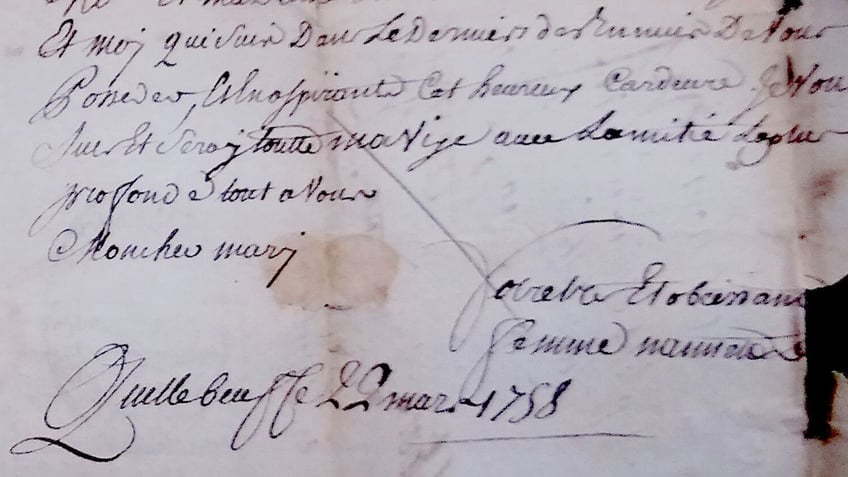 Et moy qui suis Dans Le Dernier des Ennuis De Vous
Posseder, Et En aspirants Cet heureux Je Vous
Suis Et Seray toutte ma Vige avec Lamitié Laplus
profond é tout a Vous
Moncher mary
Votre Et obeissante
femme nannette
Quillebeuffe 22 mars 1758